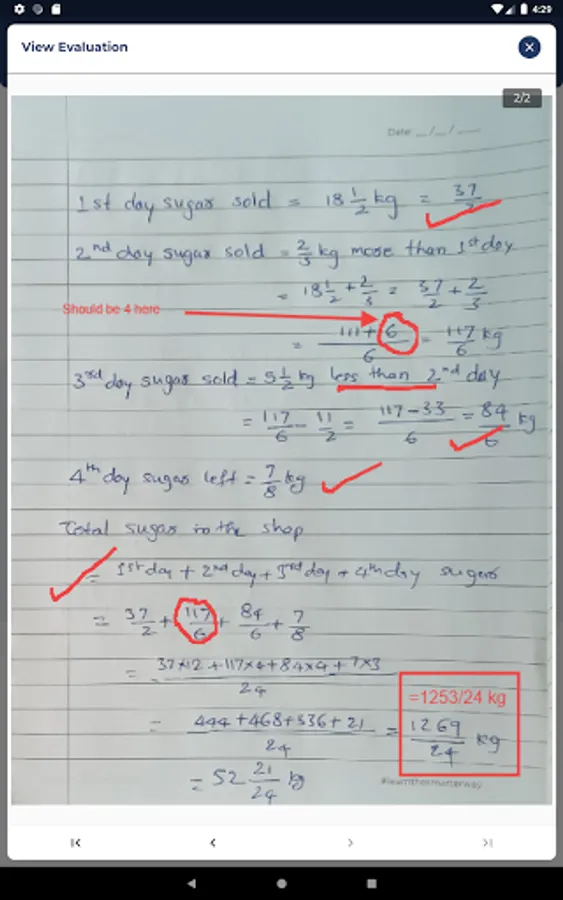 4:29
View Evaluation
2/2
Date: __/__/__
1st day sugar sold = 18 1/2 kg = 37/2
2nd day sugar sold = 2/3 kg more than 1st day
= 18 1/2 + 2/3 = 37/2 + 2/3
Should be 4 here
= 111+6/6 = 117/6 kg
3rd day sugar sold = 5 1/2 kg less than 2nd day
= 117/6 - 11/2 = 117-33/6 = 84/6 kg
4th day sugar left = 7/8 kg
Total sugar in the shop
= 1st day + 2nd day + 3rd day + 4th day sugars
= 37/2 + 117/6 + 84/6 + 7/8
= 37×12 + 117×4 + 84×4 + 7×3/24
=1253/24 kg
= 444+468+336+21/24 = 1269/24 kg
= 52 21/24 kg